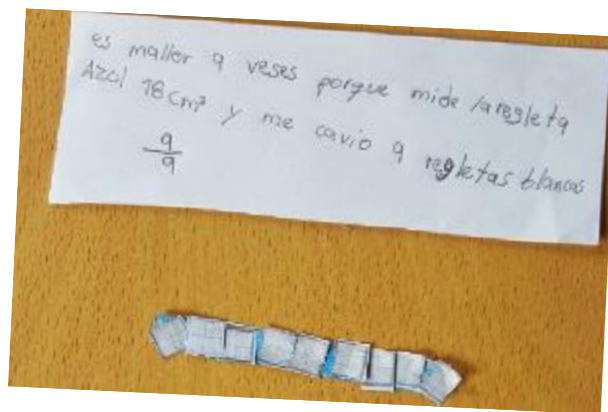 es maller 9 veses porque mide laregleta
Azul 18cm² y me cavio 9 regletas blancas
9
9